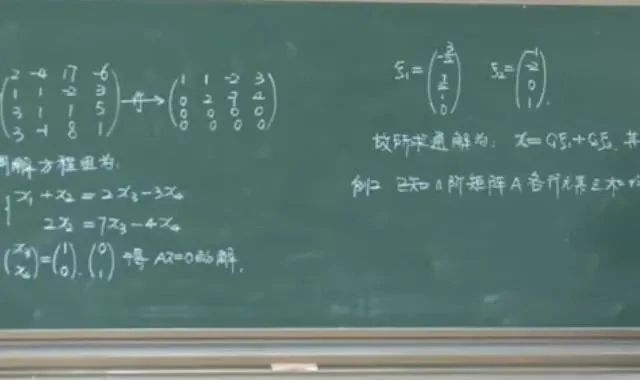 2 -4 17 -6
1 1 -2 3
3 1 1 5
3 -1 8 1
→
1 1 -2 3
0 2 7 4
0 0 0 0
0 0 0 0
同解方程组为:
x₁ + x₂ = 2x₃ - 3x₄
2x₂ = 7x₃ - 4x₄
(x₃ x₄) = (1 0), (0 1) 得 Ax=0的解.
ξ₁ = (-3/2 7/2 1 0) ξ₂ = (-1 -2 0 1).
故所求通解为: x = C₁ξ₁ + C₂ξ₂, 其
例2 已知n阶矩阵A各行元素之和